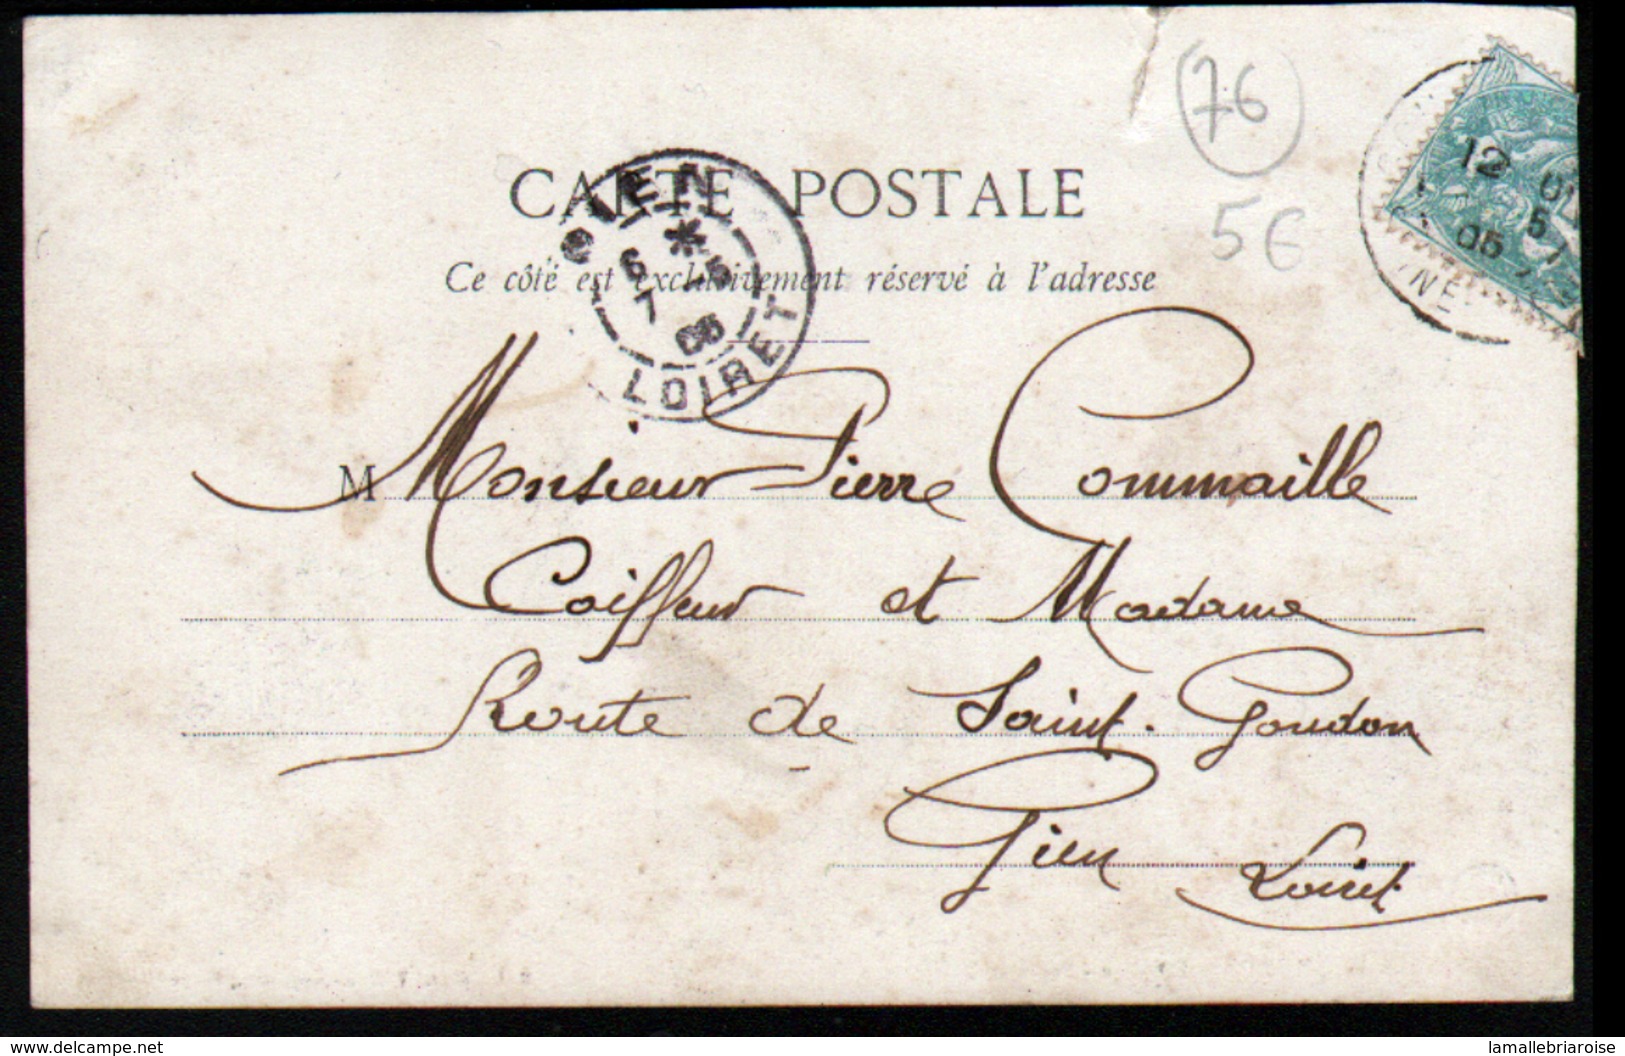 76
5€
CARTE POSTALE
Ce côté est exclusivement réservé à l'adresse
GIEN
6 * 5
7
05
LOIRET
12
5
05
INF
M Monsieur Pierre Commaille
Coiffeur et Madame
Route de Saint. Goudon
Gien Loiret
www.delcampe.net
lamallebriaroise